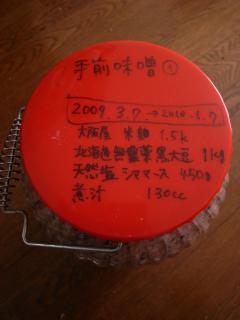 手前味噌 ①
2009.3.7 → 2010.1.7
大阪屋 米麹 1.5k
北海道無農薬黒大豆 1kg
天然塩 シママース 450g
煮汁 130cc